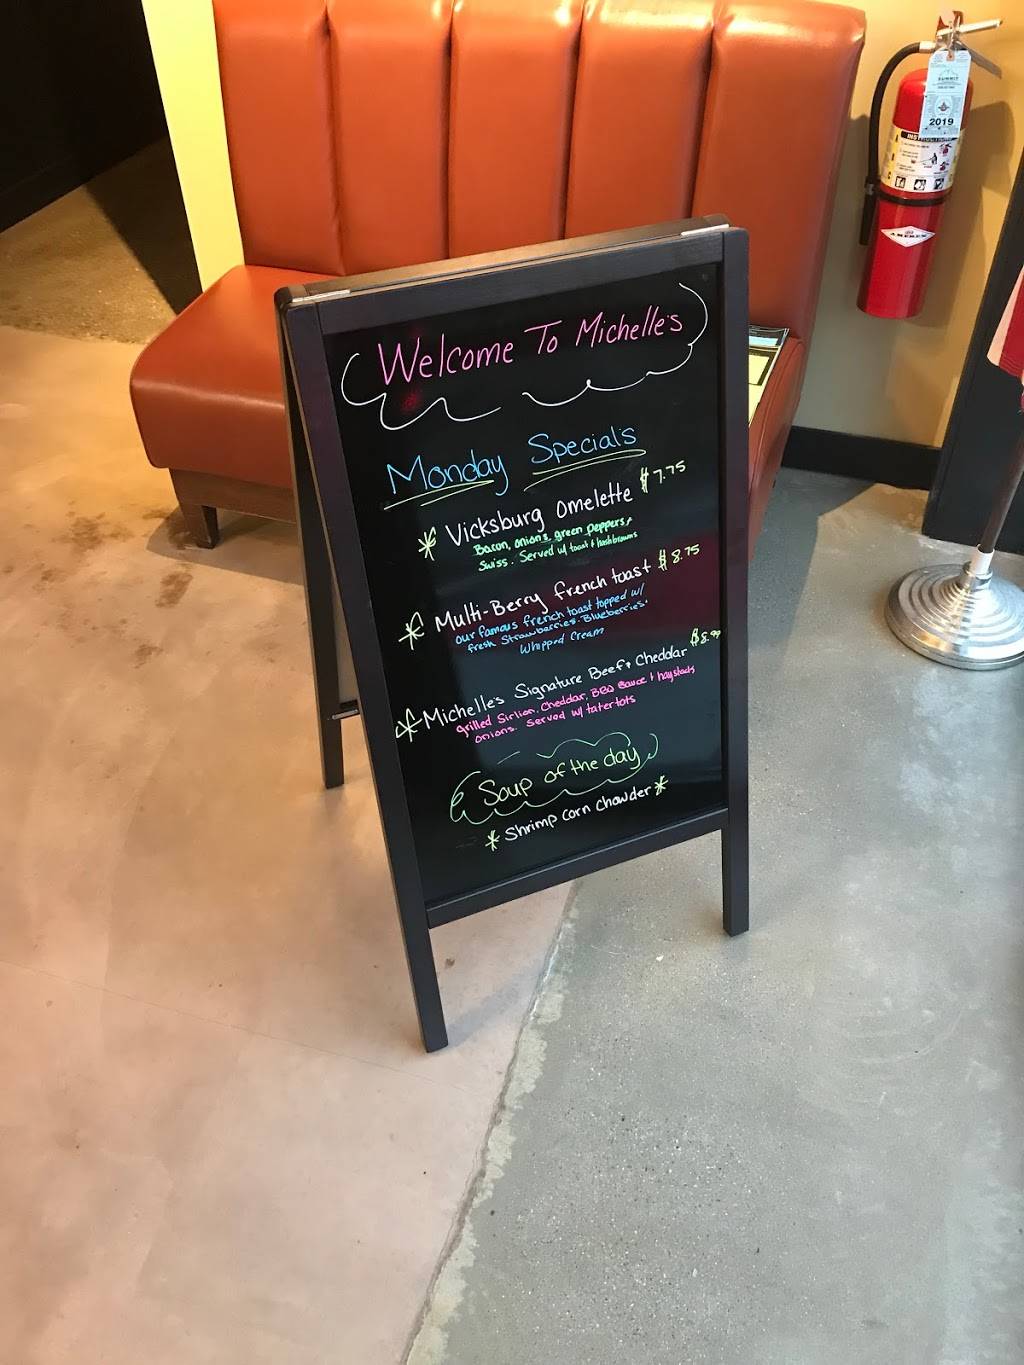 Welcome To Michelle's
Monday Specials
Vicksburg Omelette $7.75
Bacon, onions, green peppers,
Swiss. Served w/ toast + hashbrowns
Multi-Berry french toast $8.75
our famous french toast topped w/
fresh Strawberries. Blueberries.
Whipped Cream
Michelle's Signature Beef + Cheddar $8.99
grilled Sirlion, Cheddar, BBQ Sauce + haystacks
onions. Served w/ tatertots
Soup of the day
Shrimp corn chowder
SUMMIT
2019
INSTRUCTIONS
AMEREX